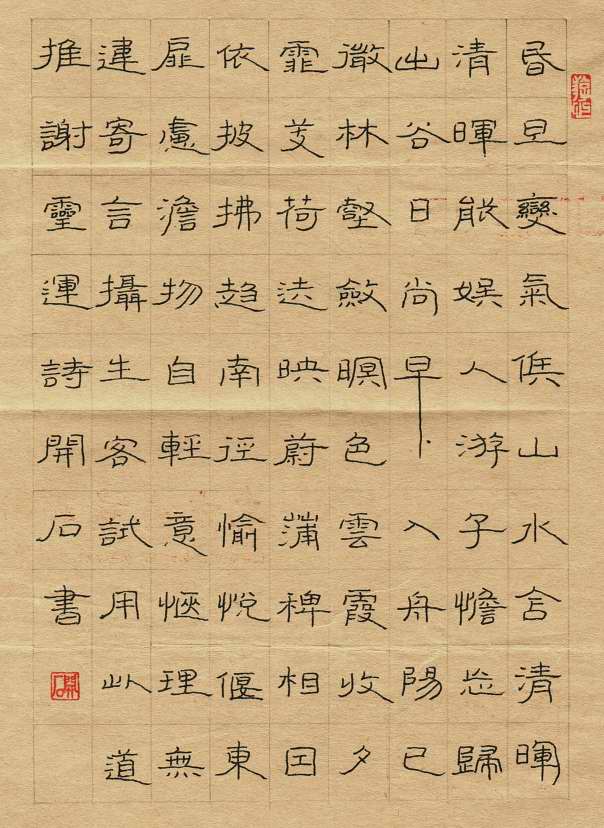 昏旦變氣候山水含清暉
清暉能娛人游子憺忘歸
出谷日尚早入舟陽已
微林壑斂暝色雲霞收夕
霏芰荷迭映蔚蒲稗相因
依披拂趨南徑愉悅偃東
扉慮澹物自輕意愜理無
違寄言攝生客試用此道
推謝靈運詩開石書
開石